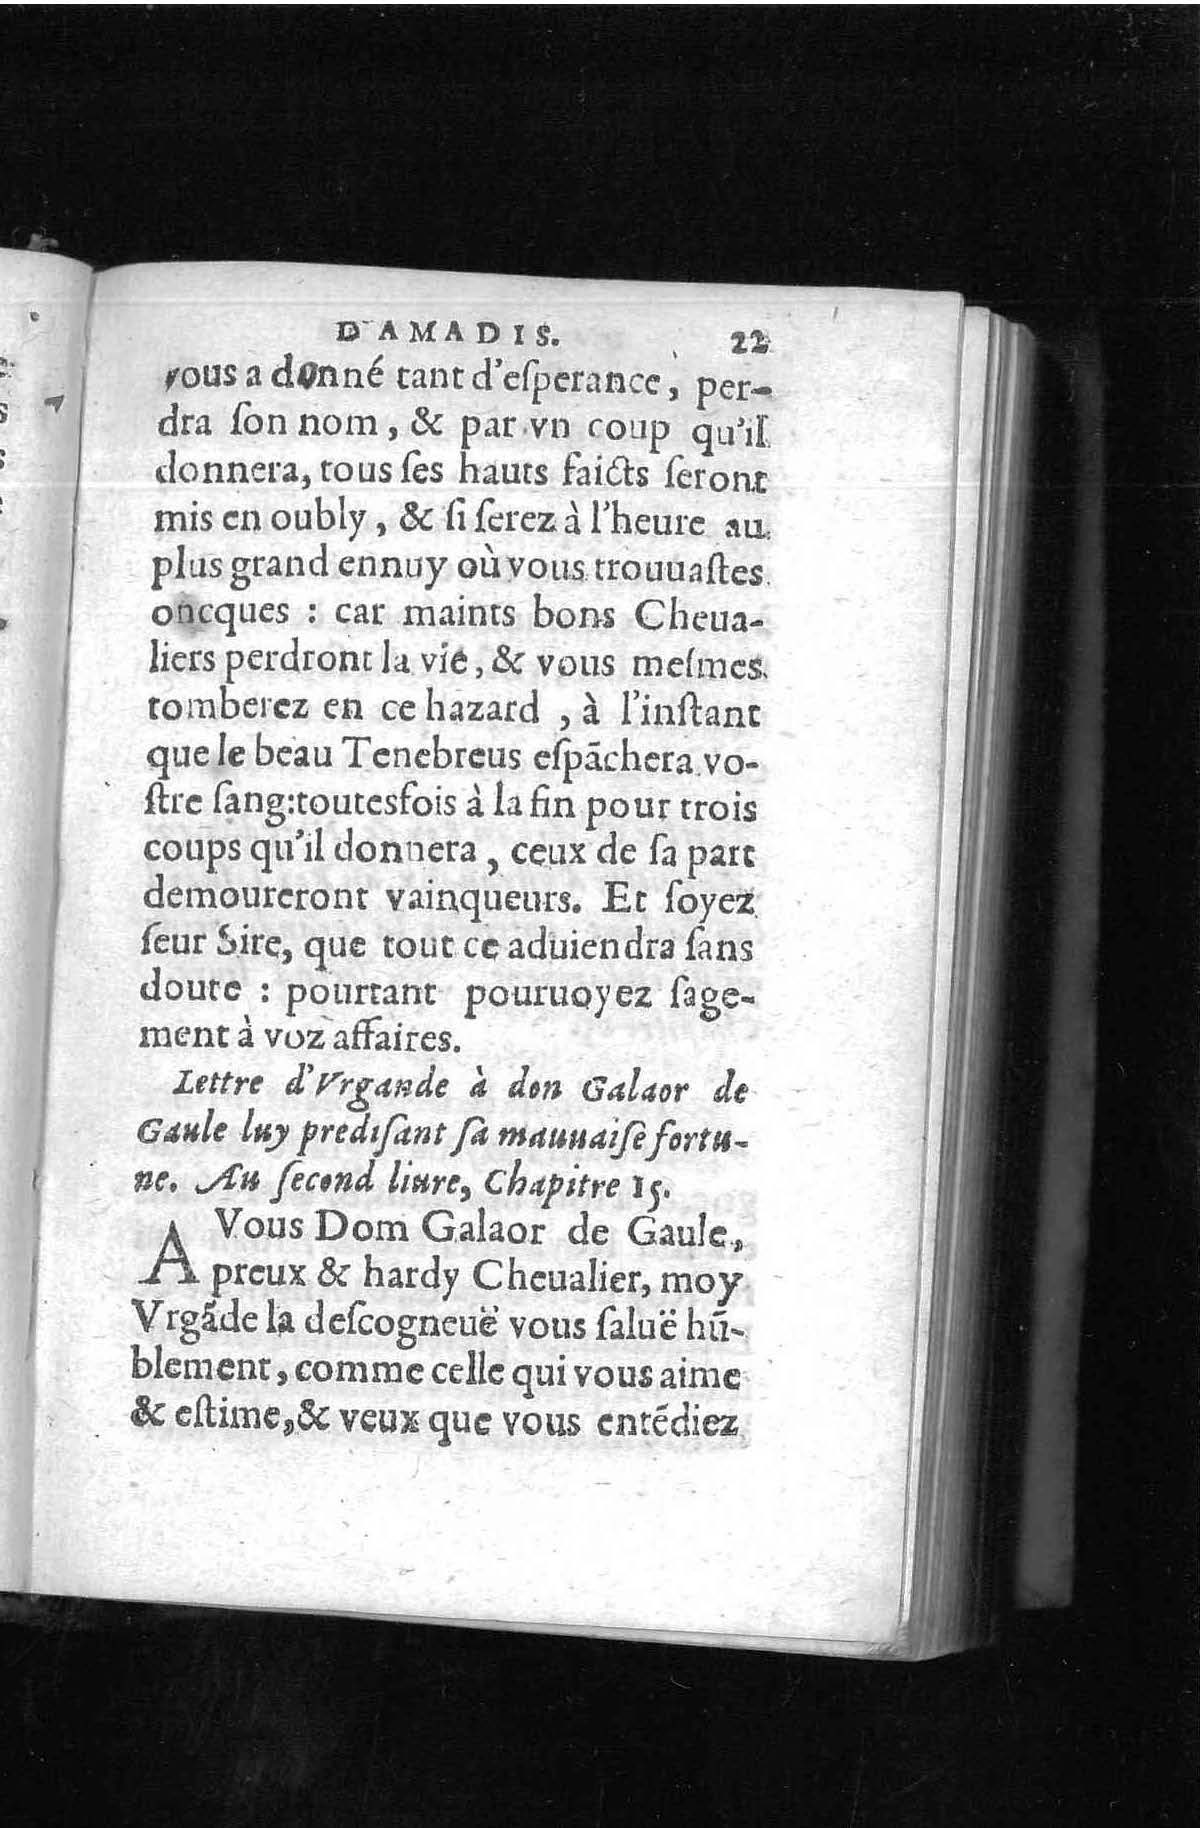 D'AMADIS. 22
vous a donné tant d'eſperance, per-
dra ſon nom, & par vn coup qu'il
donnera, tous ſes hauts faicts ſeront
mis en oubly, & ſi ſerez à l'heure au
plus grand ennuy où vous trouuaſtes
oncques : car maints bons Cheua-
liers perdront la vie, & vous meſmes
tomberez en ce hazard , à l'inſtant
que le beau Tenebreus eſpāchera vo-
ſtre ſang:toutesfois à la fin pour trois
coups qu'il donnera, ceux de ſa part
demoureront vainqueurs. Et ſoyez
ſeur Sire, que tout ce aduiendra ſans
doute : pourtant pouruoyez ſage-
ment à voz affaires.
Lettre d'Vrgande à don Galaor de
Gaule luy prediſant ſa mauuaiſe fortu-
ne. Au ſecond liure, Chapitre 15.
A Vous Dom Galaor de Gaule,
preux & hardy Cheualier, moy
Vrgāde la deſcogneuë vous ſaluë hū-
blement, comme celle qui vous aime
& eſtime, & veux que vous entēdiez